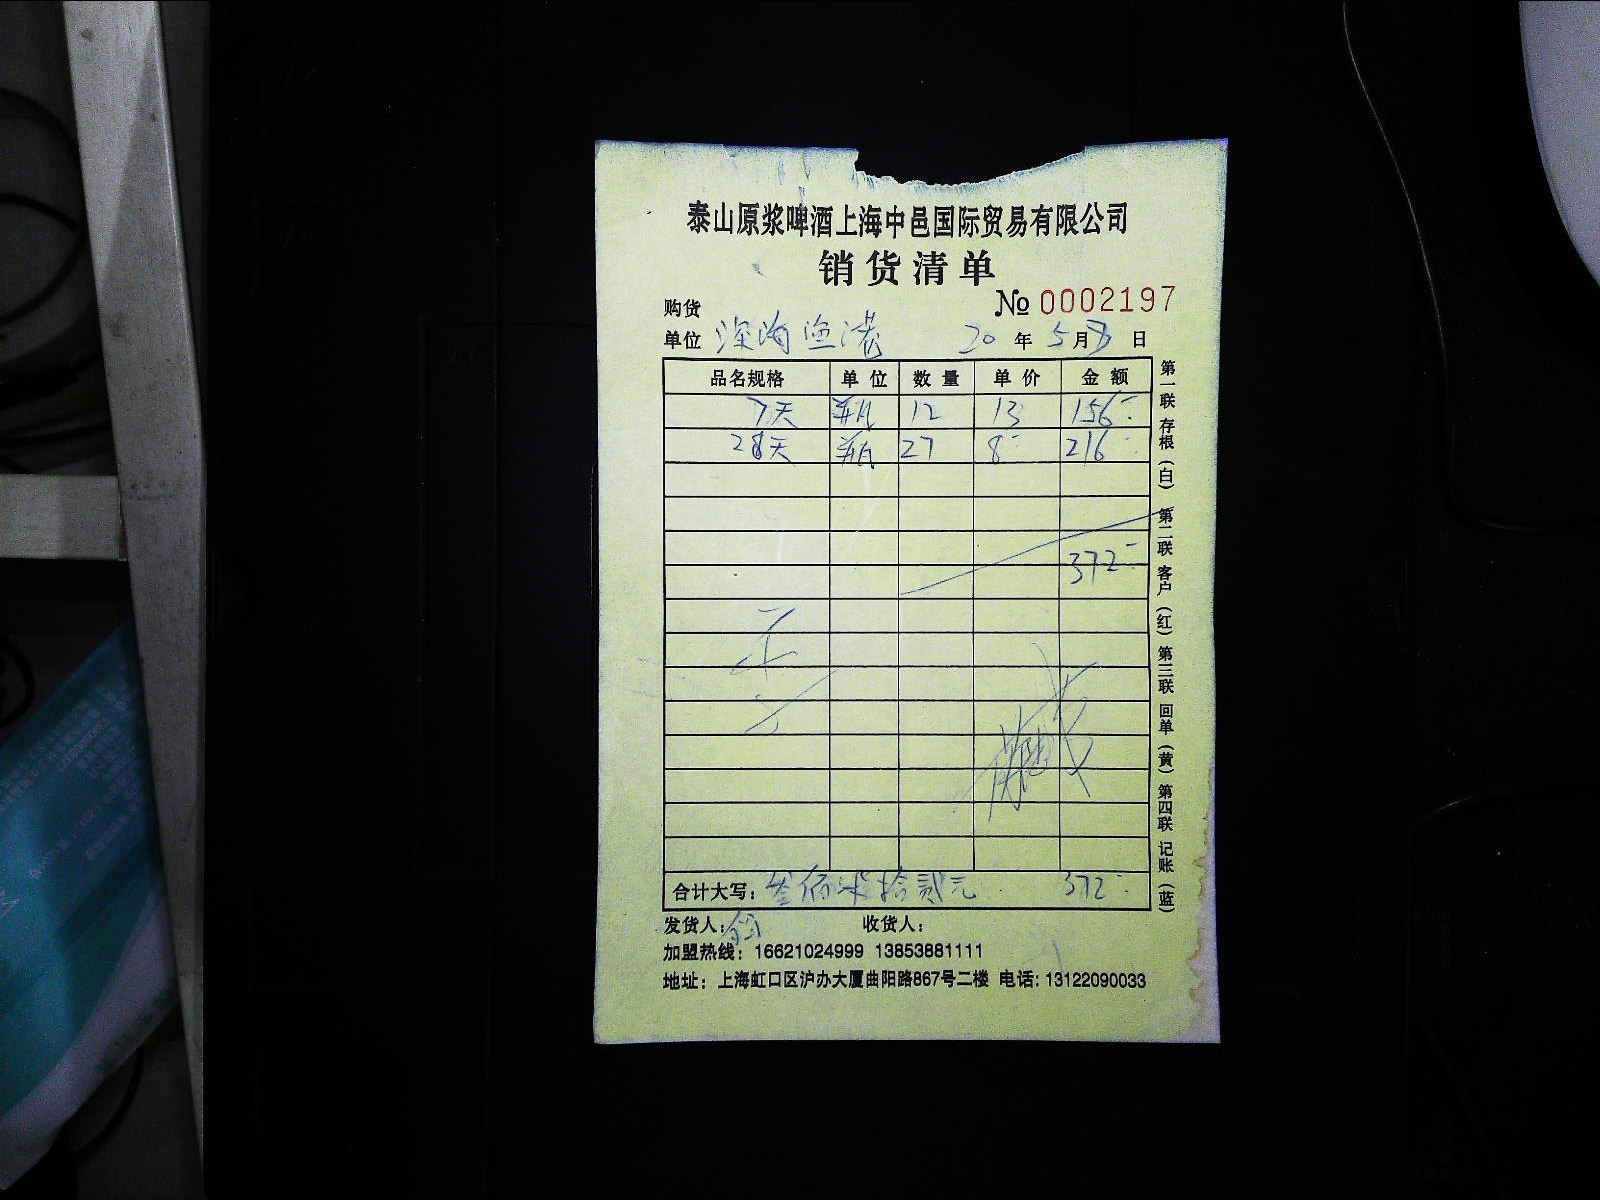 泰山原浆啤酒上海中邑国际贸易有限公司
销货清单
№ 0002197
购货
单位 深海渔港 20 年 5 月 8 日
品名规格 单位 数量 单价 金额
7天 瓶 12 13 156
28天 瓶 27 8 216
372
合计大写：叁佰柒拾贰元 372
发货人： 收货人：
加盟热线：16621024999 13853881111
地址：上海虹口区沪办大厦曲阳路867号二楼 电话：13122090033
第一联 存根（白） 第二联 客户（红） 第三联 回单（黄） 第四联 记账（蓝）